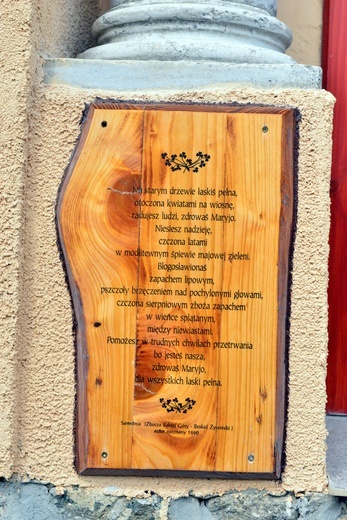 Na starym drzewie łaskiś pełna,
otoczona kwiatami na wiosnę,
radujesz ludzi, zdrowaś Maryjo.
Niesiesz nadzieję,
czczona latami
w modlitewnym śpiewie majowej zieleni.
Błogosławionaś
zapachem lipowym,
pszczoły brzęczeniem nad pochylonymi głowami,
czczona sierpniowym zboża zapachem
w wieńce splątanym,
między niewiastami.
Pomożesz w trudnych chwilach przetrwania
bo jesteś nasza,
zdrowaś Maryjo,
dla wszystkich łaski pełna.
Samotnia Zbocza Suchej Góry - Beskid Żywiecki )
autor nieznany